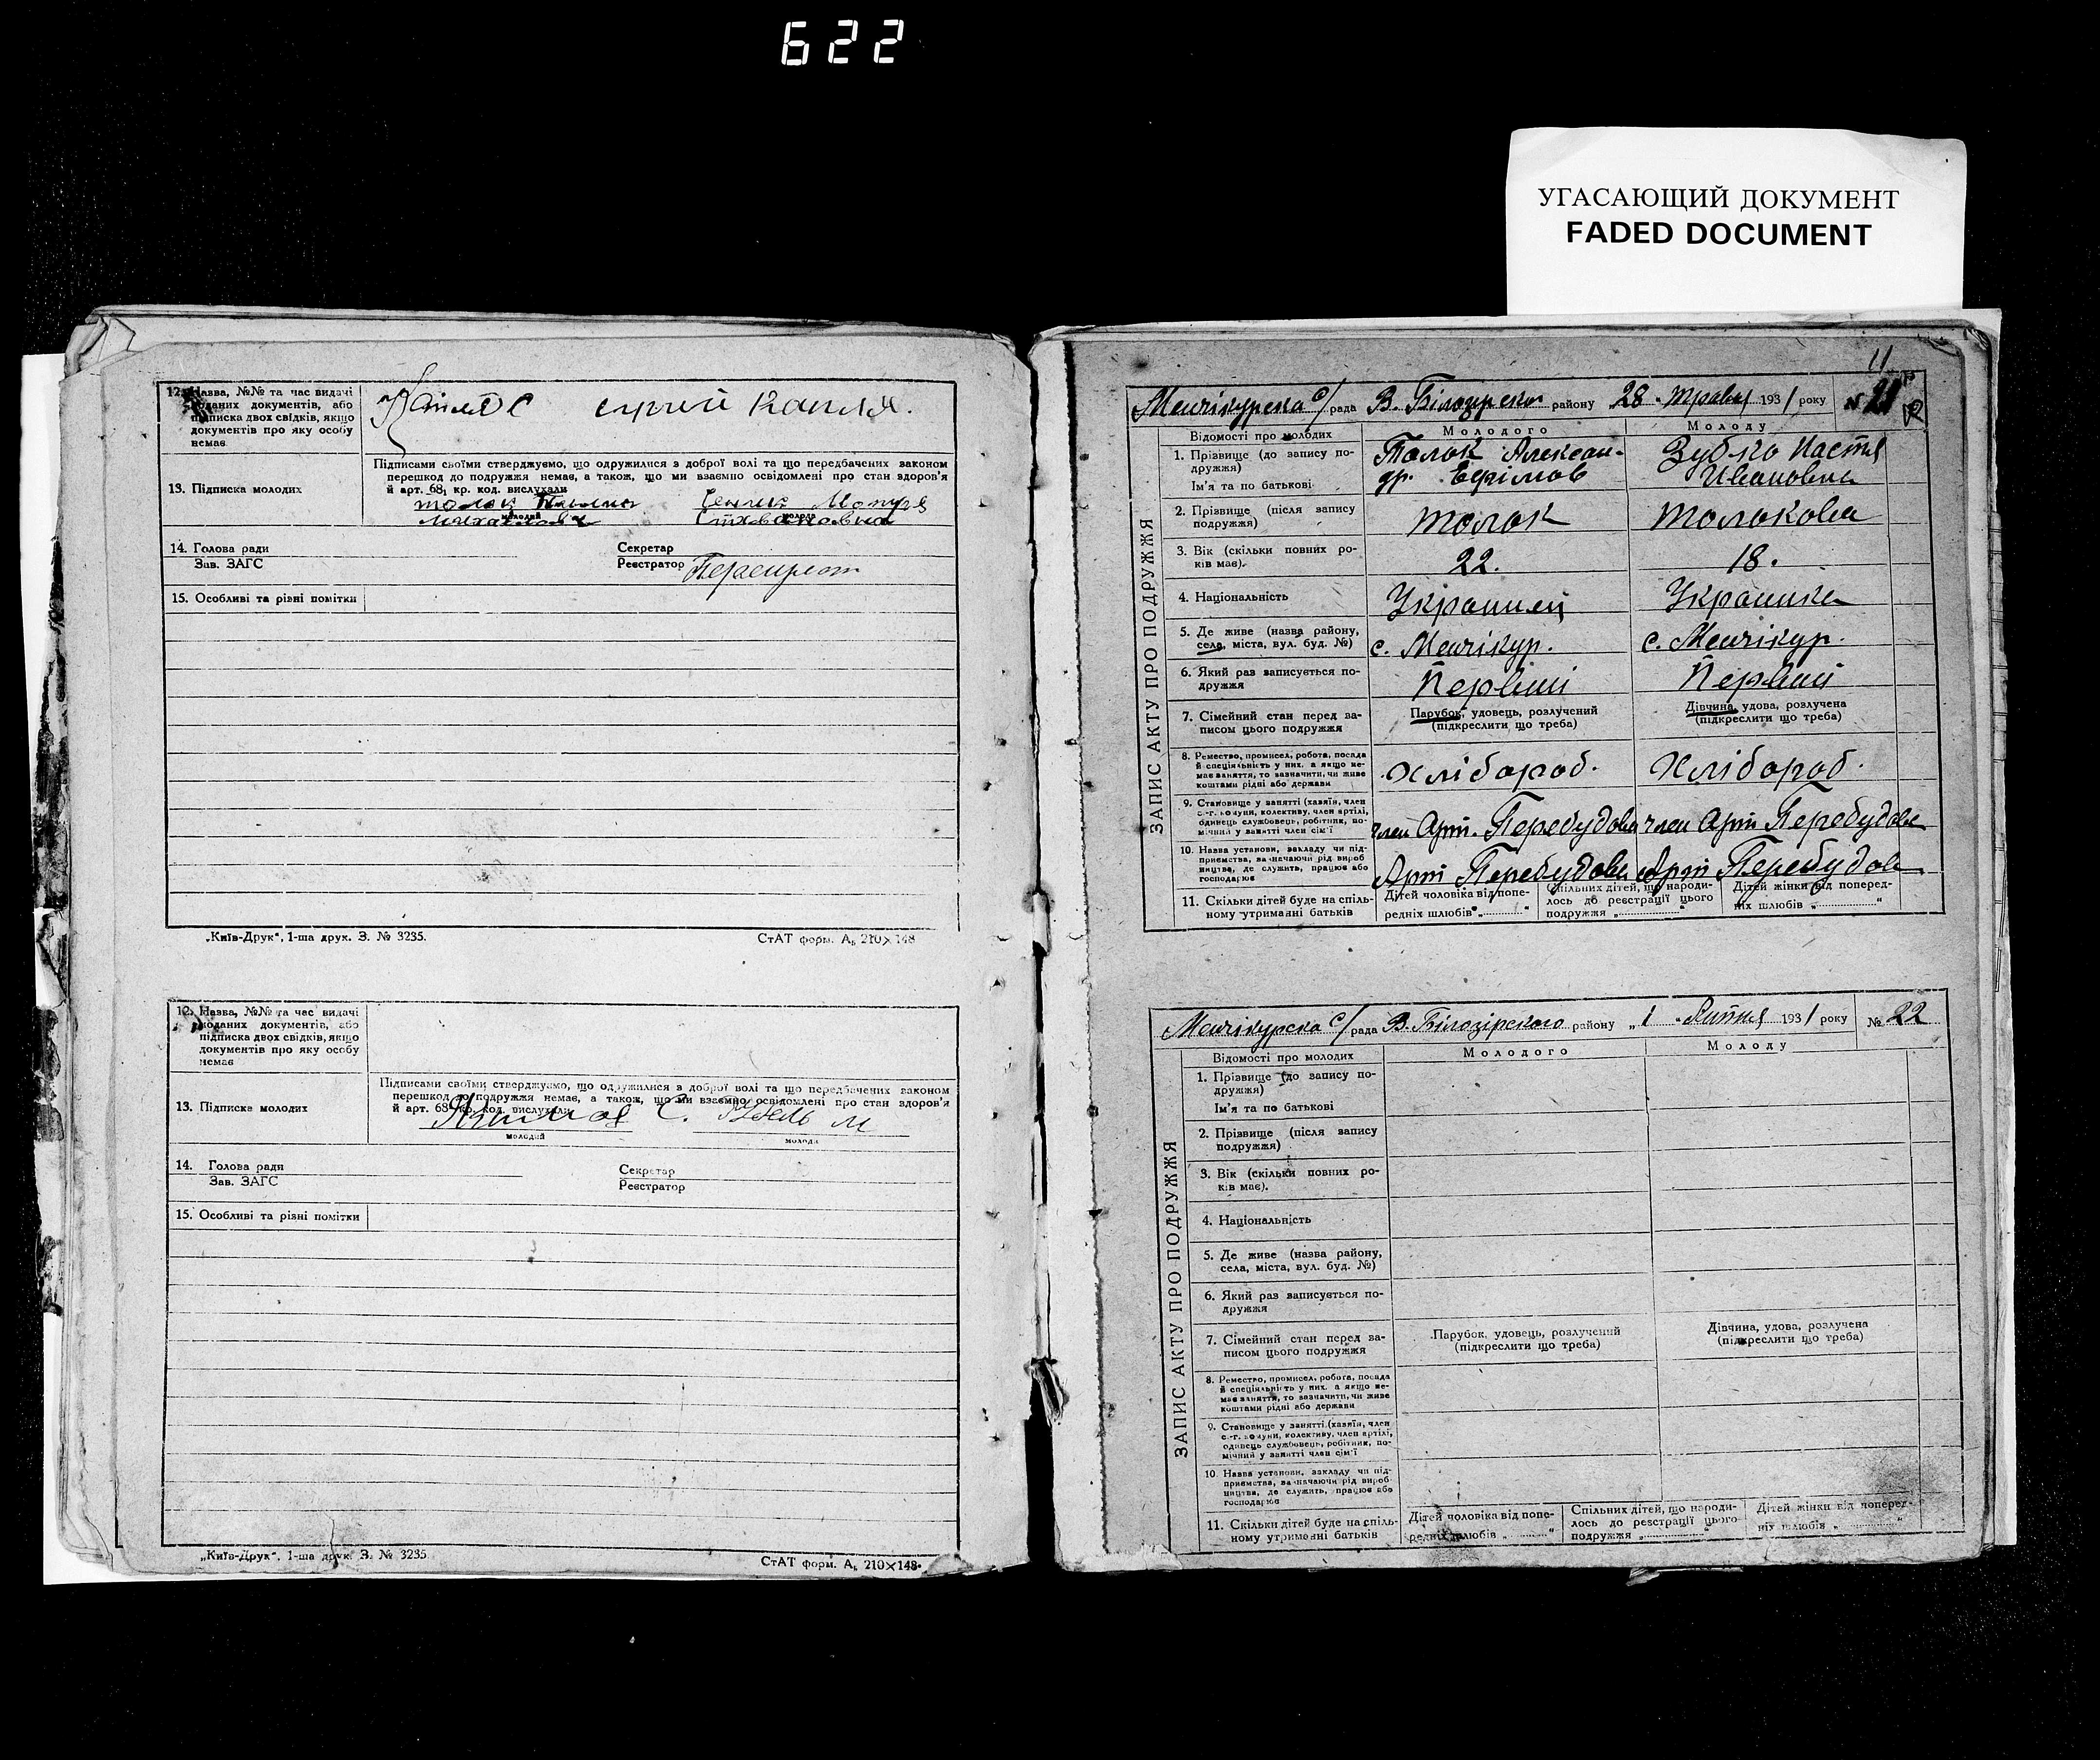 622
УГАСАЮЩИЙ ДОКУМЕНТ
FADED DOCUMENT
12. Назва, №№ та час видачі поданих документів, або підписка двох свідків, якщо документів про яку особу немає
Сергій Капля.
13. Підписка молодих
Підписами своїми стверджуємо, що одружилися з доброї волі та що передбачених законом
перешкод до подружжя немає, а також, що ми взаємно освідомлені про стан здоров'я
й арт. 68, кр. код. вислухали
толок
молодий
молода
14. Голова ради
Зав. ЗАГС
Секретар
Реєстратор
15. Особливі та різні помітки
„Київ-Друк“, 1-ша друк. З. № 3235.
СтАТ форм. А₅ 210×148
12. Назва, №№ та час видачі поданих документів, або підписка двох свідків, якщо документів про яку особу немає
13. Підписка молодих
Підписами своїми стверджуємо, що одружилися з доброї волі та що передбачених законом
перешкод до подружжя немає, а також, що ми взаємно освідомлені про стан здоров'я
й арт. 68, кр. код. вислухали
молодий
молода
14. Голова ради
Зав. ЗАГС
Секретар
Реєстратор
15. Особливі та різні помітки
„Київ-Друк“, 1-ша друк. З. № 3235
СтАТ форм. А₅ 210×148.
11
Менчікурска с/рада В. Білозирског району 28 Травня 1931 року № 21
ЗАПИС АКТУ ПРО ПОДРУЖЖЯ
Відомості про молодих
Молодого
Молоду
1. Прізвище (до запису подружжя)
Ім'я та по батькові
Толок Александр. Ефімов
Зубко Настя Ивановна
2. Прізвище (після запису подружжя)
Толок
Толокова
3. Вік (скільки повних років має).
22.
18.
4. Національність
Українец
Українка
5. Де живе (назва району, села, міста, вул. буд. №)
с. Менчікур.
с. Менчікур.
6. Який раз записується подружжя
Первий
Первий
7. Сімейний стан перед записом цього подружжя
Парубок, удовець, розлучений
(підкреслити що треба)
Дівчина, удова, розлучена
(підкреслити що треба)
8. Ремество, промисел, робота, посада й спеціяльність у них, а якщо немає заняття, то зазначити, чи живе коштами рідні або держави
Хлібороб.
Хлібороб.
9. Становище у занятті (хазяїн, член с.-г. комуни, колективу, член артілі, одинець службовець, робітник, помічний у занятті член сім'ї
член Арт. Перебудова
член Арт Перебудова
10. Назва установи, закладу чи підприємства, зазначаючи рід виробництва, де служить, працює або господарює
Арт Перебудова
Арт Перебудов
11. Скільки дітей буде на спільному утриманні батьків
Дітей чоловіка від попередніх шлюбів „ “
Спільних дітей, що народилось до реєстрації цього подружжя „ “
Дітей жінки від попередніх шлюбів „ “
Менчікурска с/рада В. Білозірского району „1 Липня 1931 року № 22
ЗАПИС АКТУ ПРО ПОДРУЖЖЯ
Відомості про молодих
Молодого
Молоду
1. Прізвище (до запису подружжя)
Ім'я та по батькові
2. Прізвище (після запису подружжя)
3. Вік (скільки повних років має).
4. Національність
5. Де живе (назва району, села, міста, вул. буд. №)
6. Який раз записується подружжя
7. Сімейний стан перед записом цього подружжя
Парубок, удовець, розлучений
(підкреслити що треба)
Дівчина, удова, розлучена
(підкреслити що треба)
8. Ремество, промисел, робота, посада й спеціяльність у них, а якщо немає заняття, то зазначити, чи живе коштами рідні або держави
9. Становище у занятті (хазяїн, член с.-г. комуни, колективу, член артілі, одинець службовець, робітник, помічний у занятті член сім'ї
10. Назва установи, закладу чи підприємства, зазначаючи рід виробництва, де служить, працює або господарює
11. Скільки дітей буде на спільному утриманні батьків
Дітей чоловіка від попередніх шлюбів „ “
Спільних дітей, що народилось до реєстрації цього подружжя „ “
Дітей жінки від попередніх шлюбів „ “